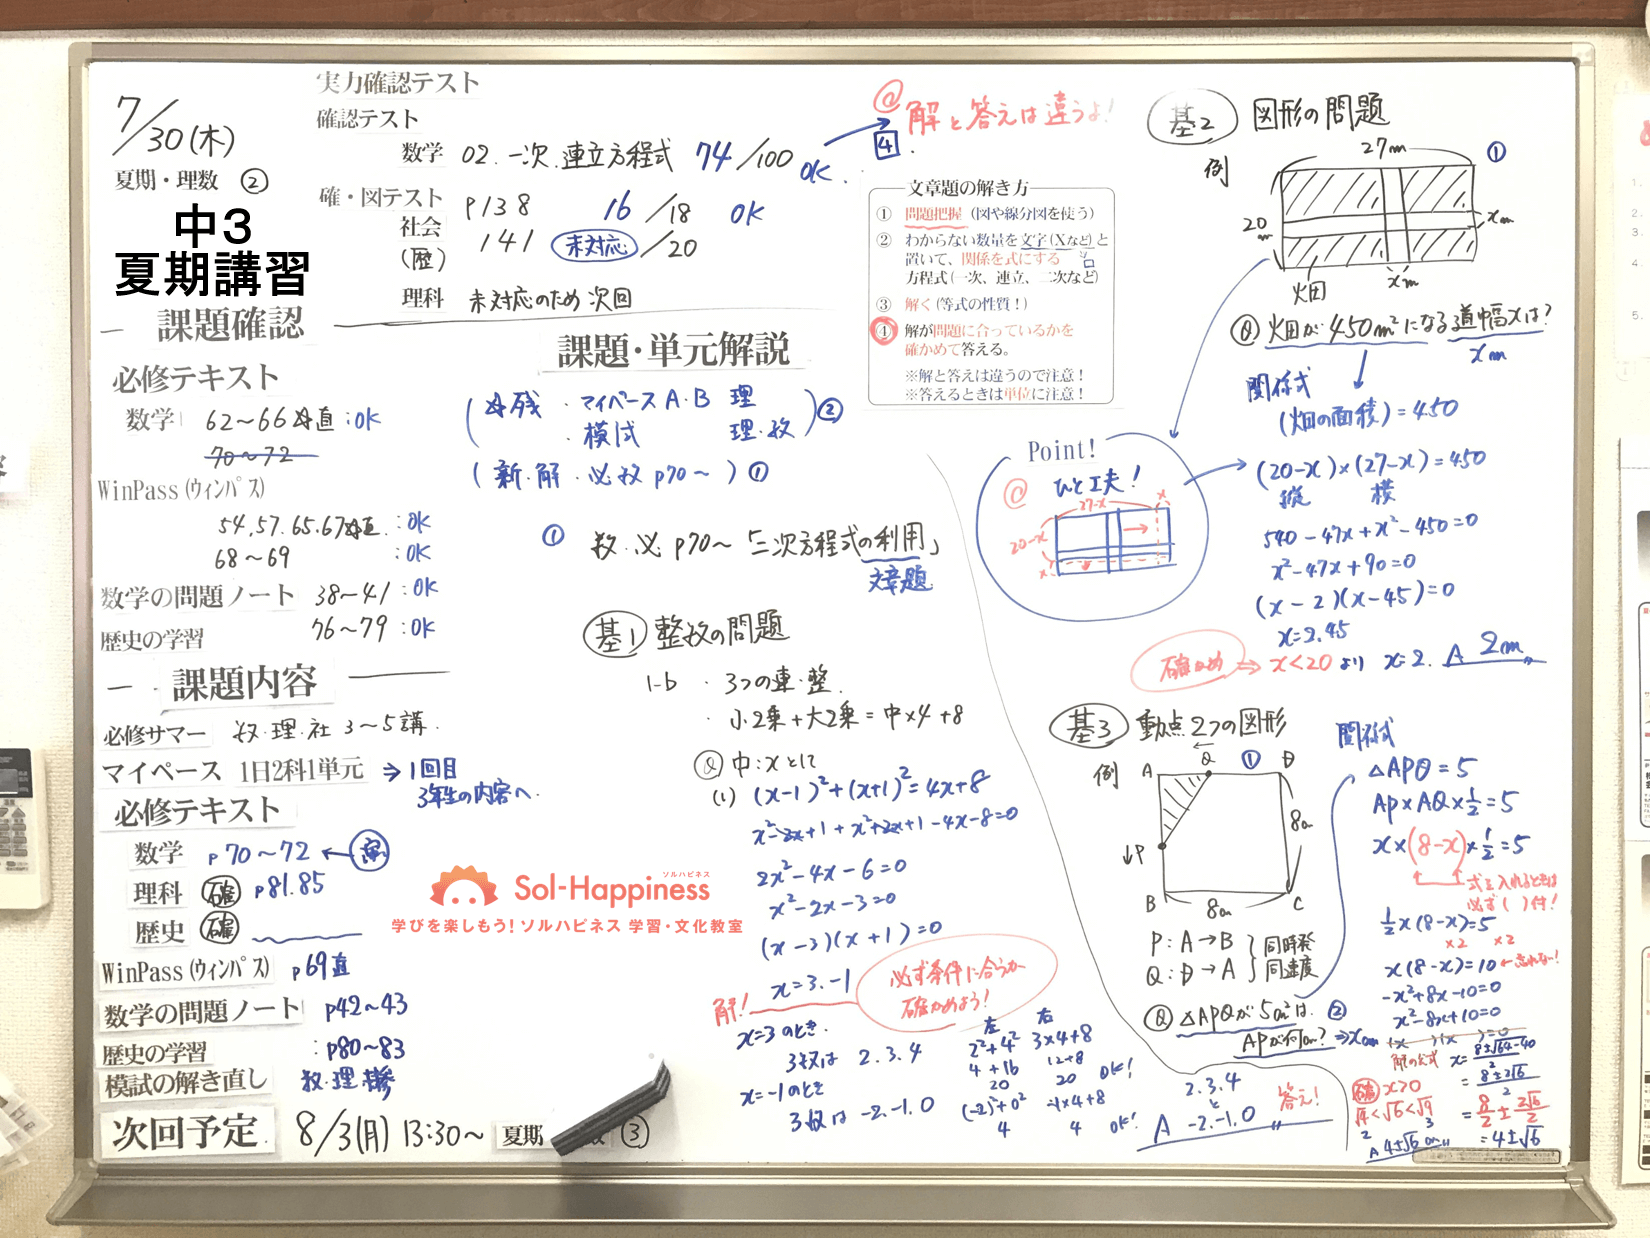 7/30(木)
夏期・理数 ②
中3
夏期講習
実力確認テスト
確認テスト
数学 02. 一次.連立方程式 74/100 OK.
確・図テスト
社会
(歴)
P138 16/18 OK
141 未対応/20
理科 未対応のため次回
課題確認
必修テキスト
数学 62～66 直:OK
70～72
WinPass(ウィンパス)
54,57.65.67 直:OK
68～69 :OK
数学の問題ノート 38～41 :OK
歴史の学習 76～79 :OK
課題内容
必修サマー 数・理・社 3～5講.
マイペース 1日2科1単元 ⇒1回目
3年生の内容へ.
必修テキスト
数学 P70～72
理科 確 P81.85
歴史 確
WinPass(ウィンパス) P69直
数学の問題ノート P42～43
歴史の学習 :P80～83
模試の解き直し 数・理
次回予定 8/3(月) 13:30～ 夏期 数 ③
課題・単元解説
残 ・マイペースA・B 理
・模試 理・数 ②
(新・解・必数P70～) ①
① 数・必 P70～「二次方程式の利用」
文章題
基1 整数の問題
1-b ・3つの連・整.
・小2乗+大2乗=中×4+8
Q 中:xとして
(1) (x-1)²+(x+1)²=4x+8
x²-2x+1+x²+2x+1-4x-8=0
2x²-4x-6=0
x²-2x-3=0
(x-3)(x+1)=0
x=3.-1
解!
必ず条件に合うか
確かめよう!
x=3のとき.
3数は 2.3.4
x=-1のとき
3数は -2.-1.0
左 右
2²+4² 3×4+8
4+16 12+8
20 20 OK!
(-2)²+0² -1×4+8
4 4 OK!
2.3.4
と
A -2.-1.0
答え!
Sol-Happiness
ソルハピネス
学びを楽しもう! ソルハピネス 学習・文化教室
@ 解と答えは違うよ!
4.
文章題の解き方
① 問題把握(図や線分図を使う)
② わからない数量を文字(Xなど)と
置いて、関係を式にする
方程式(一次、連立、二次など)
③ 解く(等式の性質!)
④ 解が問題に合っているかを
確かめて答える。
※解と答えは違うので注意!
※答えるときは単位に注意!
Point!
@ ひと工夫!
27-x
20-x
x
x
基2 図形の問題
例
27m
①
20m
xm
xm
畑
Q 畑が450m²になる道幅xは?
xm
関係式
(畑の面積)=450
(20-x)×(27-x)=450
縦 横
540-47x+x²-450=0
x²-47x+90=0
(x-2)(x-45)=0
x=2.45
確かめ ⇒ x<20より x=2. A 2m
基3 動点2つの図形
例
A Q ① D
P
8cm
B 8cm C
P:A→B
Q:D→A
同時発
同速度
Q △APQが5cm²は. ②
APが何cm? ⇒xcm
関係式
△APQ=5
AP×AQ×1/2=5
x×(8-x)×1/2=5
式を入れるときは
必ず( )付!
1/2x(8-x)=5
×2 ×2
x(8-x)=10 ←忘れない!
-x²+8x-10=0
x²-8x+10=0
(x )(x )=0
解の公式 x=8±√64-40
2
=8±2√6
2
=8/2±2√6/2
=4±√6
確 x>0
√4<√6<√9
2 3
A 4±√6 cm